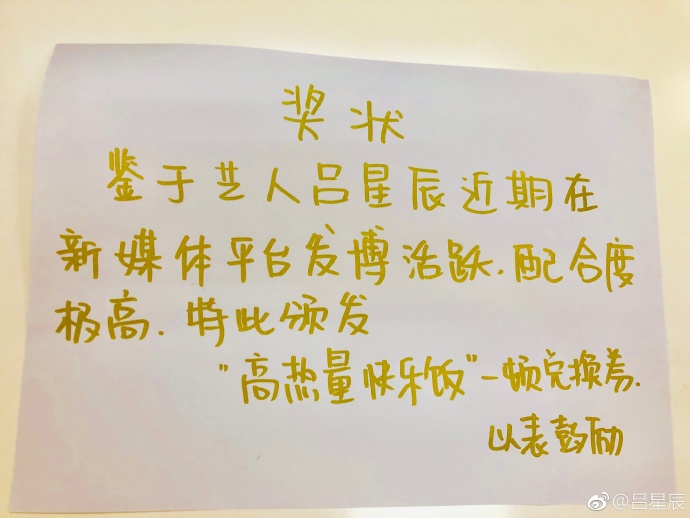 奖状
鉴于艺人吕星辰近期在
新媒体平台发博活跃.配合度
极高.特此颁发
"高热量快乐饭"一顿兑换券.
以表鼓励
@吕星辰